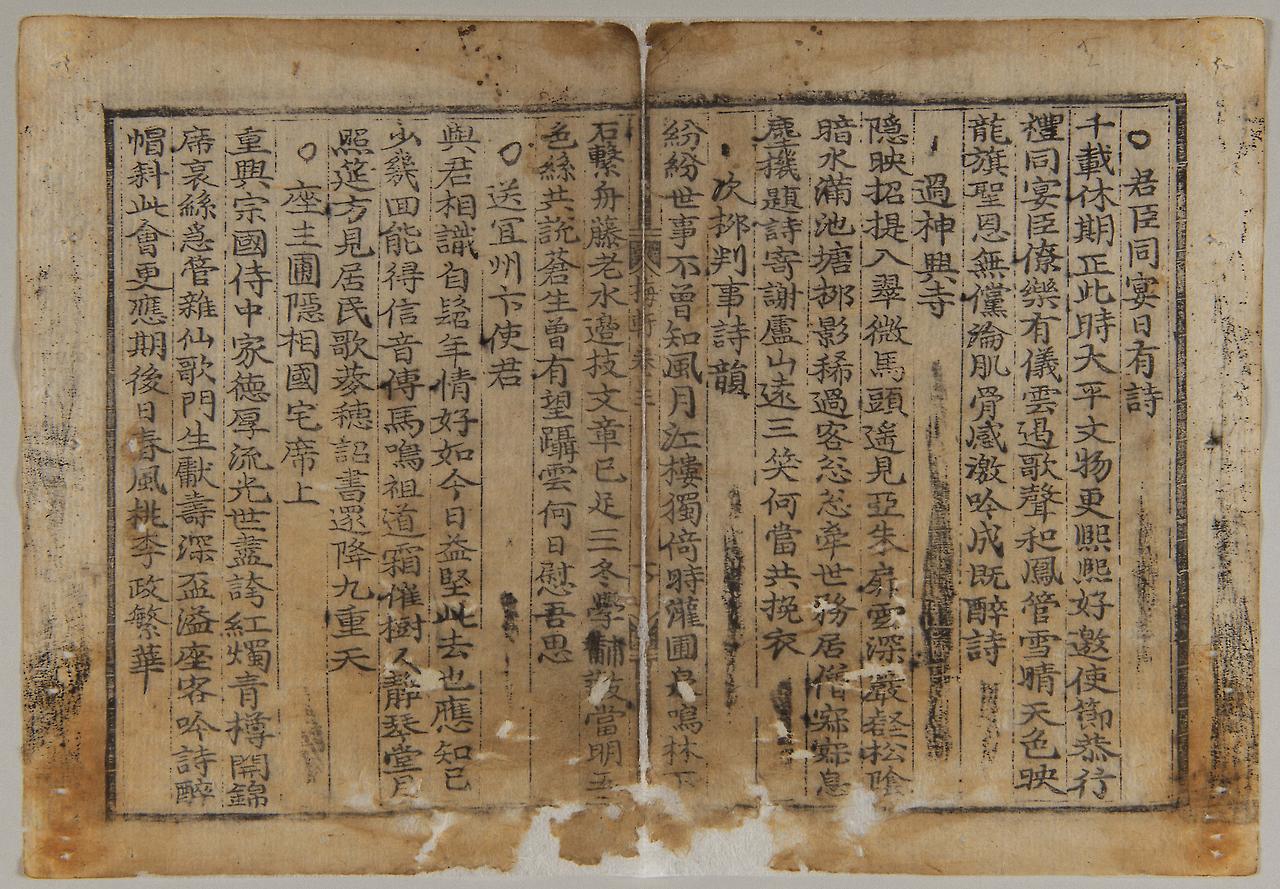 君臣同宴日有詩
千載休期正此時大平文物更熈熈好邀使御恭行
禮同宴臣僚樂有儀雲遏歌聲和鳳管雪晴天色映
龍旗聖恩無儻淪肌骨感激吟成既醉詩
過神興寺
隐映招提入翠微馬頭遥見亞朱扉雲深巖壑松陰
暗水滿池塘栁影稀過客忩忩牽世務居僧寂寂息
塵機題詩寄謝盧山遠三笑何當共挽衣
次栁判事詩韻
紛紛世事不曾知風月江樓獨倚時灌圃泉鳴林下
石繫舟藤老水邊技文章已足三冬學黼黻當明五
色絲共說蒼生曾有望躡雲何日慰吾思
送宜州卞使君
與君相識自髫年情好如今日益堅此去也應知已
少幾回能得信音傳馬鳴祖道霜惟樹人靜琴堂月
照筵方見居民歌麥穗詔書還降九重天
座主圃隠相國宅席上
重興宗國侍中家德厚流光世盡誇紅燭青樽開錦
席哀絲急管雜仙歌門生獻壽深盃溢座客吟詩醉
帽斜此會更應期後日春風桃李政繁華